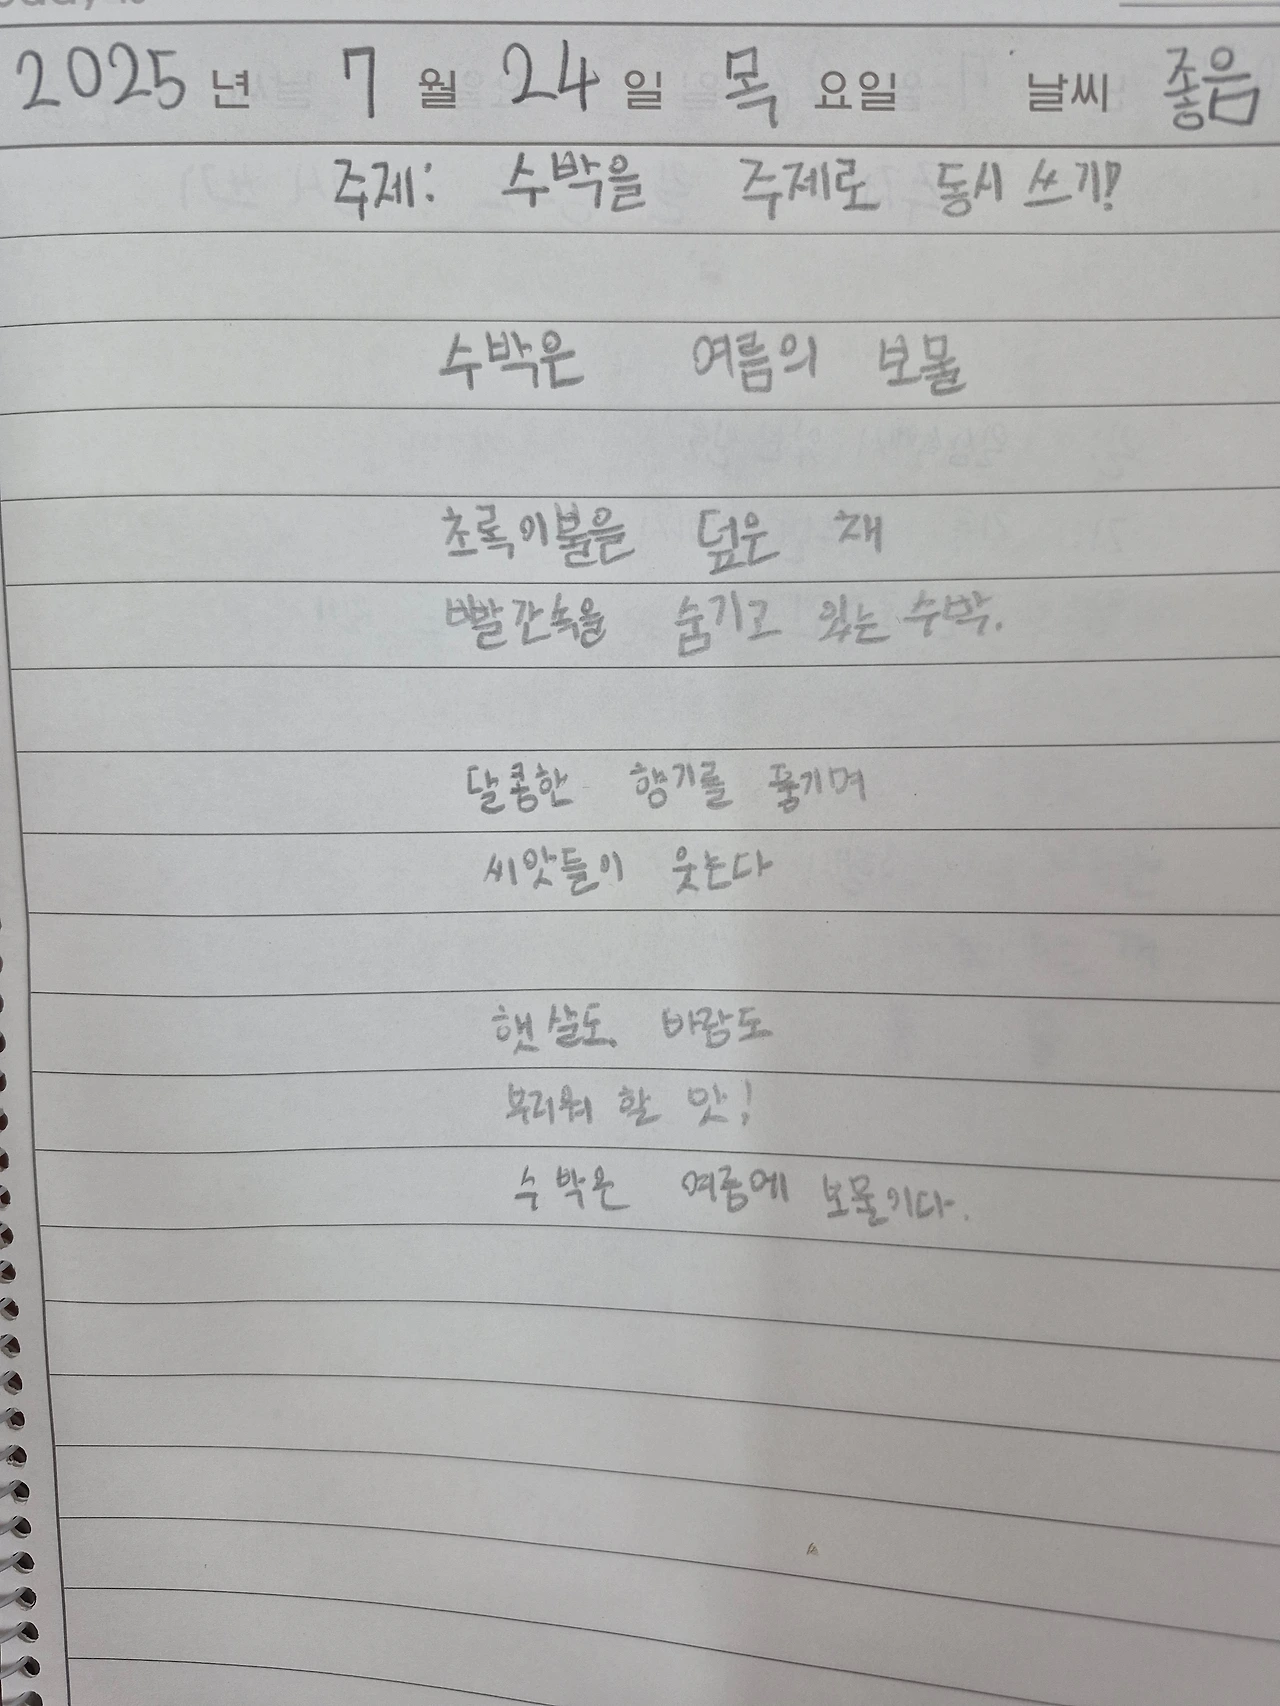 2025 년 7 월 24 일 목 요일 날씨 좋음
주제: 수박을 주제로 동시 쓰기!
수박은 여름의 보물
초록이불을 덮은 채
빨간속을 숨기고 있는 수박.
달콤한 향기를 풍기며
씨앗들이 웃는다
햇살도, 바람도
부러워 할 맛!
수박은 여름에 보물이다.